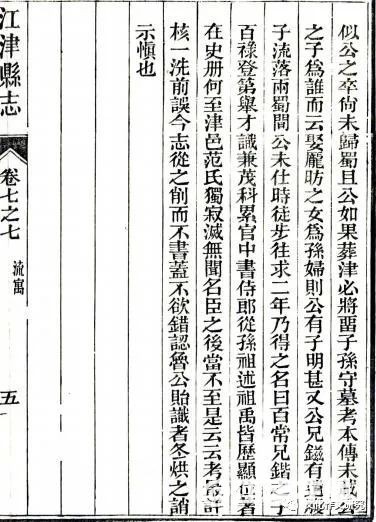 似公之卒尚未歸蜀且公如果葬津必將畱子孫守墓考本傳未載公
之子爲誰而云娶龎昉之女爲孫婦則公有子明甚又公兄鎡有遺腹
子流落兩蜀間公未仕時徒步往求二年乃得之名曰百常兄鍇之子
百祿登第舉才識兼茂科累官中書侍郎從孫祖述祖禹皆歷顯位著
在史册何至津邑范氏獨寂滅無聞名臣之後當不至是云云考
核一洗前誤今志從之削而不書蓋不欲錯認魯公貽識者冬烘之誚
示愼也
江津縣志
卷七之七
流寓
五